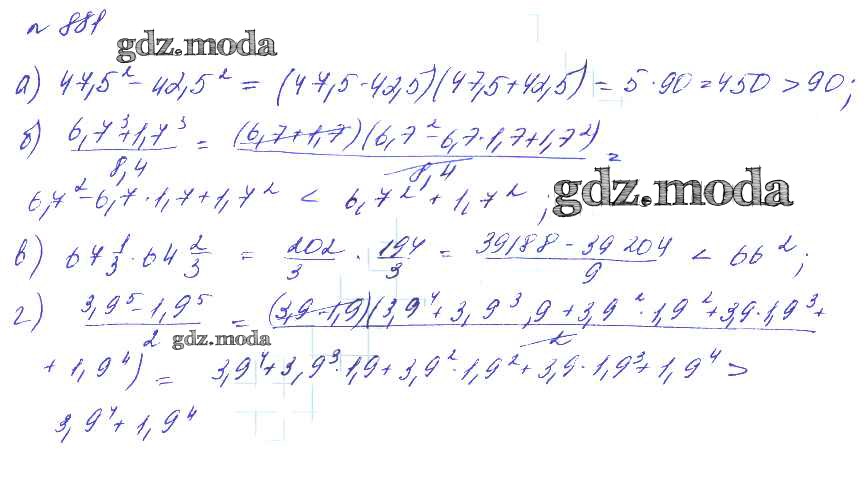 № 881
gdz.moda
а) 47,5² - 42,5² = (47,5-42,5)(47,5+42,5) = 5·90 = 450 > 90;
б) (6,7³+1,7³)/8,4 = (6,7+1,7)(6,7²-6,7·1,7+1,7²)/8,4 =
6,7²-6,7·1,7+1,7² < 6,7² + 1,7² ;
gdz.moda
в) 67 1/3 · 64 2/3 = 202/3 · 194/3 = (39188 - 39204)/9 < 66²;
г) (3,9⁵-1,9⁵)/2 = (3,9-1,9)(3,9⁴+3,9³,9+3,9²·1,9²+3,9·1,9³+
gdz.moda
+ 1,9⁴)/2 = 3,9⁴+3,9³·1,9+3,9²·1,9²+3,9·1,9³+1,9⁴ >
3,9⁴+1,9⁴